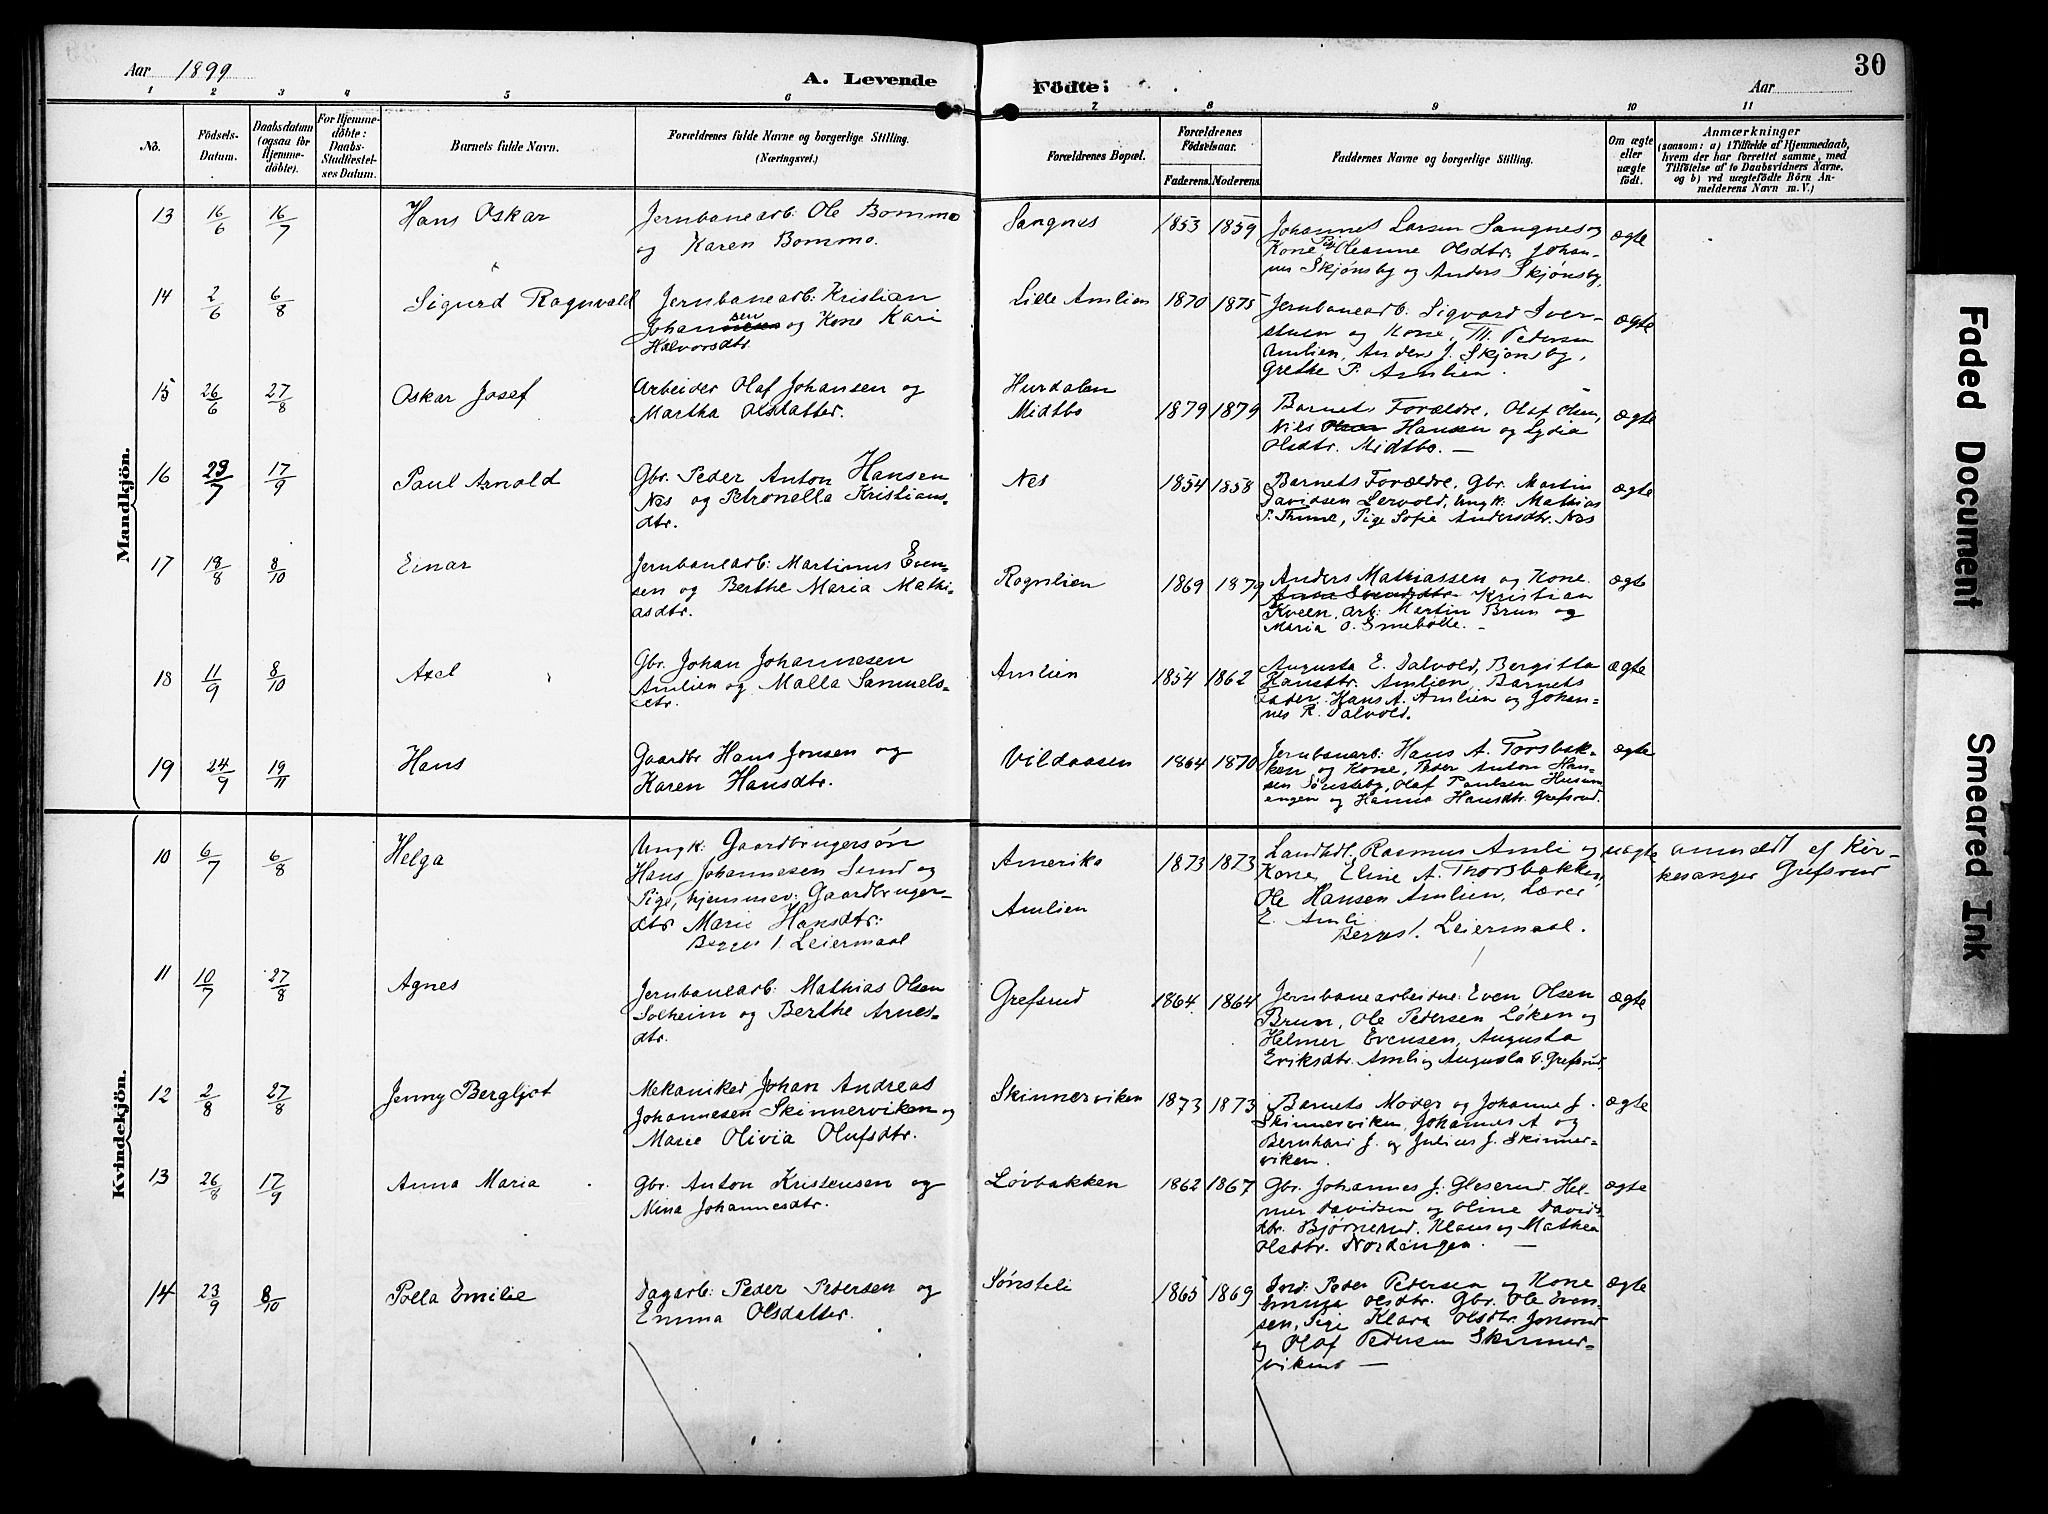 Aar 1899
A. Levende
Födte:
Aar
30
1 2 3 4 5 6 7 8 9 10 11
No.
Födsels-
Datum.
Daabsdatum
(ogsaa for
Hjemme-
döbte).
For Hjemme-
döbte:
Daabs-
Stadfæstel-
ses Datum.
Barnets fulde Navn.
Forældrenes fulde Navne og borgerlige Stilling.
(Næringsvei.)
Forældrenes Bopæl.
Forældrenes
Födselsaar.
Faderens. Moderens.
Faddernes Navne og borgerlige Stilling.
Om ægte
eller
uægte
födt.
Anmærkninger
(saasom: a) i Tilfælde af Hjemmedaab,
hvem der har forrettet samme, med
Tilföielse af to Daabsvidners Navne,
og b) ved uægtefödte Börn An-
melderens Navn m. V.)
Mandkjön.
13 16/6 16/7 Hans Oskar
Jernbanearb: Ole Bommo
og Karen Bommo.
Sangnes 1853 1859
Johannes Larsen Sangnes og
Kone Oleanne Olsdtr. Johan-
nes Skjønsby og Anders Skjønsby,
ægte
14 2/6 6/8 Sigurd Ragnvald
Jernbanearb: Kristian
Johansen og Kone Kari
Halvorsdtr.
Lille Amlien 1870 1875
Jernbanearb. Sigvard Iver-
stuen og Kone, Th. Pedersen
Amlien, Anders J. Skjønsby,
Grethe P. Amlien.
ægte
15 26/6 27/8 Oskar Josef
Arbeider Olaf Johansen og
Martha Olsdatter.
Hurdalen
Midtbo 1879 1879
Barnets Forældre, Olaf Olsen,
Nils Hansen og Lydia
Olsdtr. Midtbo. —
ægte
16 29/7 17/9 Paul Arnold
Gbr. Peder Anton Hansen
Nes og Petronella Kristians-
dtr.
Nes 1854 1858
Barnets Forældre, Gbr. Martin
Davidsen Lervold, Ungk. Mathias
P. Thune, Pige Sofie Andersdtr. Nes
ægte
17 19/8 8/10 Einar
Jernbanearb: Martinus Even-
sen og Berthe Maria Mathi-
asdtr.
Rognlien 1869 1879
Anders Mathiassen og Kone.
Kristian
Kveen, arb: Martin Brun og
Maria O. Smebølle. —
ægte
18 11/9 8/10 Axel
Gbr. Johan Johannesen
Amlien og Malla Samuels-
dtr.
Amlien 1854 1862
Augusta E. Dalvold, Bergitta
Hansdtr. Amlien, Barnets
Fader, Hans A. Amlien og Johan-
nes R. Dalvold.
ægte
19 24/9 19/11 Hans
Gaardbr Hans Jonsen og
Karen Hansdtr.
Vildaasen 1864 1870
Jernbanearb: Hans A. Torsbak-
ken og Kone, Peder Anton Han-
sen Sønsteby, Olaf Paulsen
engen og Hanna Hansdtr. Grefsrud.
ægte
Kvindekjön.
10 6/7 6/8 Helga
Ungk: Gaardbrugersøn
Hans Johannesen Sund og
Pige, hjemmev: Gaardbruger-
dtr Marie Hansdtr:
Begges 1. Leiermaal
Amerika
Amlien
1873 1873
Landhdl. Rasmus Amli og
Kone, Eline A. Thorsbakken,
Ole Hansen Amlien, Lærer
E. Amli
Begges 1. Leiermaal.
uægte
anmeldt af Kir-
kesanger Grefsrud
11 10/7 27/8 Agnes
Jernbanearb: Mathias Olsen
Solheim og Berthe Arnes-
dtr.
Grefsrud 1864 1864
Jernbanearbeidne: Even Olsen
Brun, Ole Pedersen Løken og
Helmer Evensen, Augusta
Eriksdtr. Amli og Augusta O. Grefsrud
ægte
12 2/8 27/8 Jenny Bergljot
Mekaniker Johan Andreas
Johannesen Skinnerviken og
Marie Olivia Olufsdtr.
Skinnerviken 1873 1873
Barnets Moder og Johanne J.
Skinnerviken, Johannes A og
Bernhard J. og Julius J. Skinner-
viken.
ægte
13 26/8 17/9 Anna Maria
Gbr. Anton Kristensen og
Mina Johannesdtr.
Løvbakken 1862 1867
Gbr. Johannes J. Gleserud. Hel-
mer Davidsen og Oline Davids-
dtr. Bjørnerud. Klaus og Mathea
Olsdtr. Nordengen. —
ægte
14 23/9 8/10 Polla Emilie
Dagarb: Peder Pedersen og
Emma Olsdatter.
Sønsteli 1865 1869
Ind: Peder Pedersen og Kone
Emma Olsdtr. Gbr. Ole Even-
sen, Pige Klara Olsdtr. Jonsrud
og Olaf Pedersen Skinner-
vikens —
ægte
Faded Document
Smeared Ink